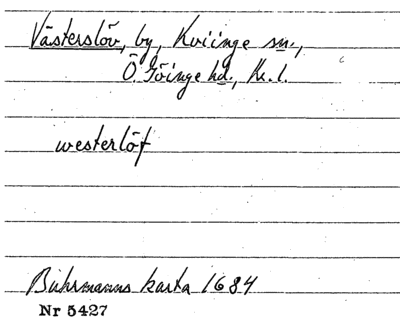 Västerslöv, by, Kviinge sn.,
Ö. Göinge hd., Kr. l.
westerlöf
Buhrmanns karta 1684
Nr 5427